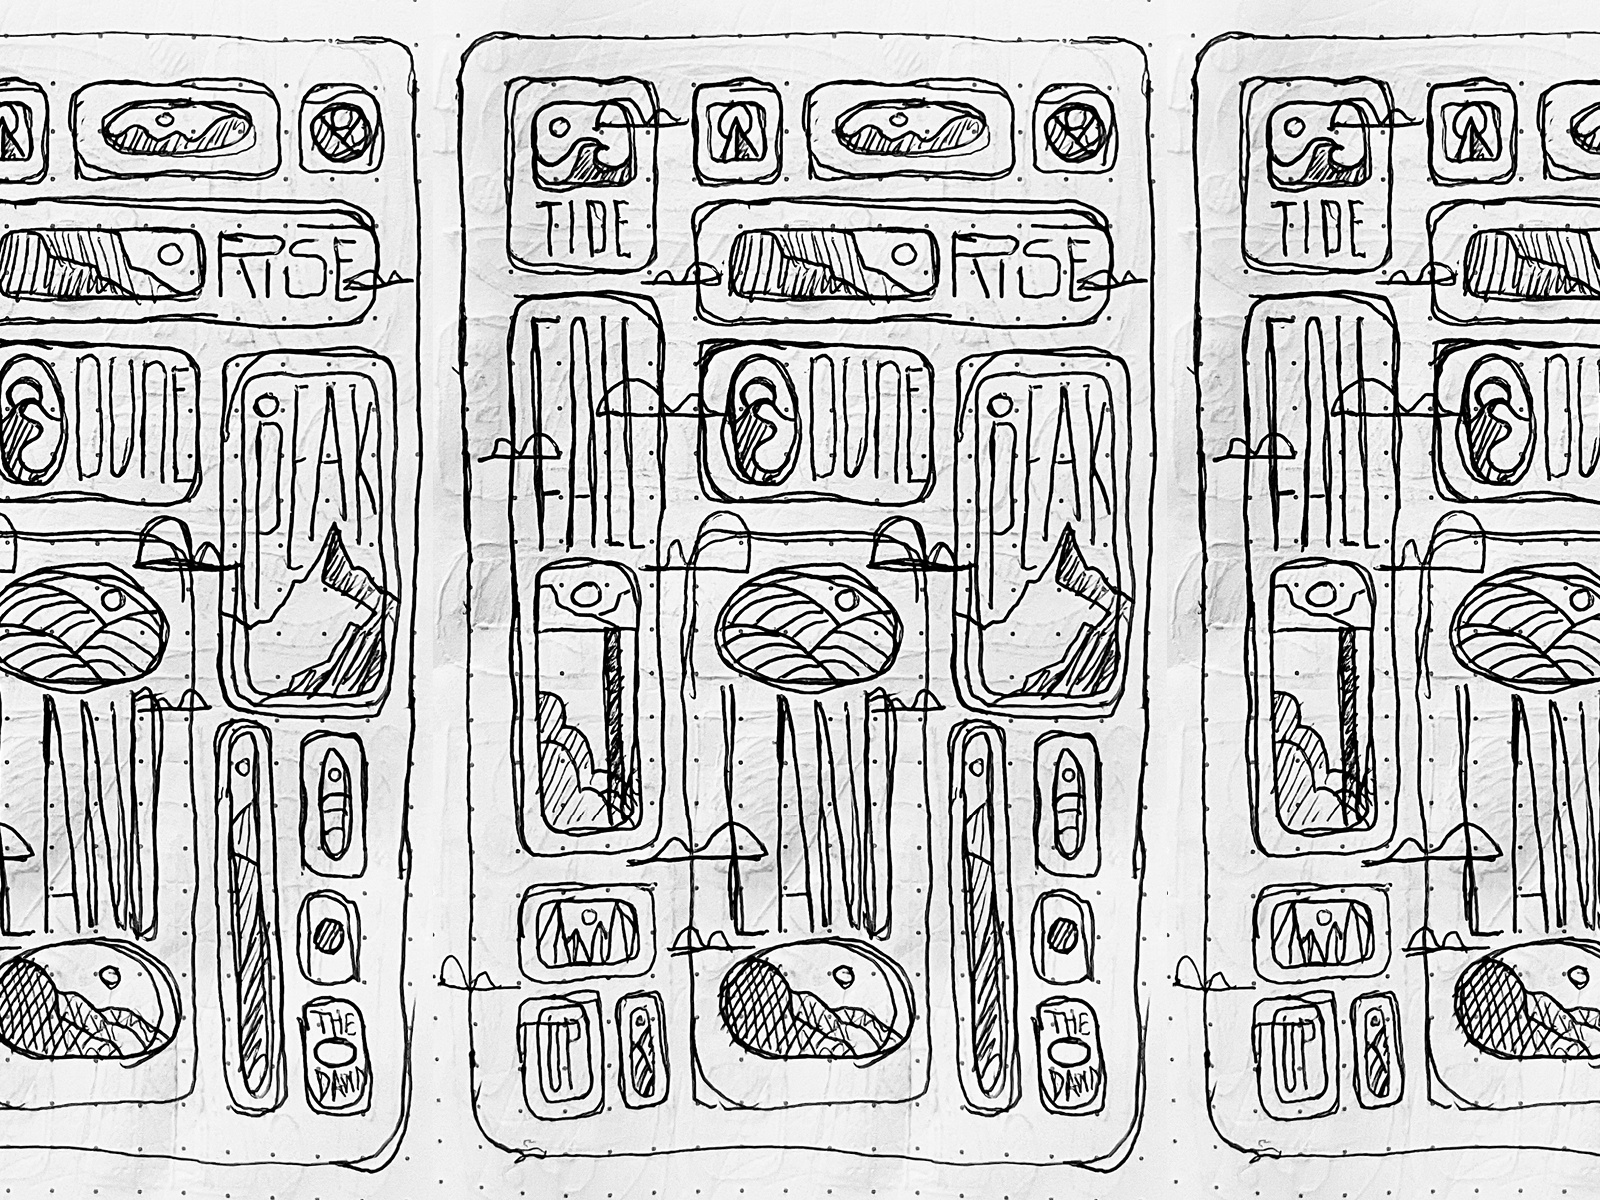 RISE
DUNE
PEAK
LAND
THE
DAWN
TIDE
RISE
FALL
DUNE
PEAK
LAND
UP
THE
DAWN
TIDE
FALL
DU
LAN
UP